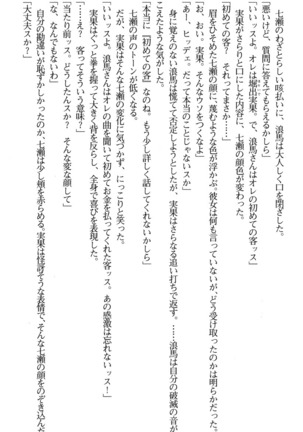 七瀬のわざとらしい咳払いに、浪馬は大人しく口を閉ざした。
「悪いけど、質問に答えてもらえるかしら」
「いいッスよ。オレは堀出実果。で、浪馬さんはオレの初めての客ッス」
実果がさらりと口にした内容に、七瀬の顔色が変わった。
「初めての客？　それってまさか……」
眉をひそめた七瀬の顔に、蔑むような色が浮かぶ。彼女は何も言っていないが、どう受け取ったのかは明らかだった。
「お、おい。実果、そんなウソをつくなよ」
「あー、ヒッデェ。だって本当のことじゃないスか」
身に覚えのない浪馬は慌てて否定しようとしたが、実果はさらなる追い打ちで返す。……浪馬は自分の破滅の音が
こえたような気がした。
「本当に『初めての客』なのね。もう少し詳しく話してくれないかしら」
七瀬の声のトーンが低くなる。
だが、実果はそんな七瀬の変化に気づかず、にっこりと笑った。
「いいッスよ。浪馬さんはオレの曲を聞いて初めてお金を払ってくれた客ッス。あの感激は忘れないッス！」
実果はぐっと拳を握って大きく背を反らし、全身で喜びを表現した。
「……え？　客ってそういう意味？」
「当たり前ッス。どうしたんスか？　そんな変な顔して」
「な、なんでもないわ」
自分の勘違いが恥ずかしかったのか、七瀬は少し頬を赤らめる。実果は怪訝そうな表情で、そんな七瀬の顔をのぞき込んだ
「大丈夫スか？」